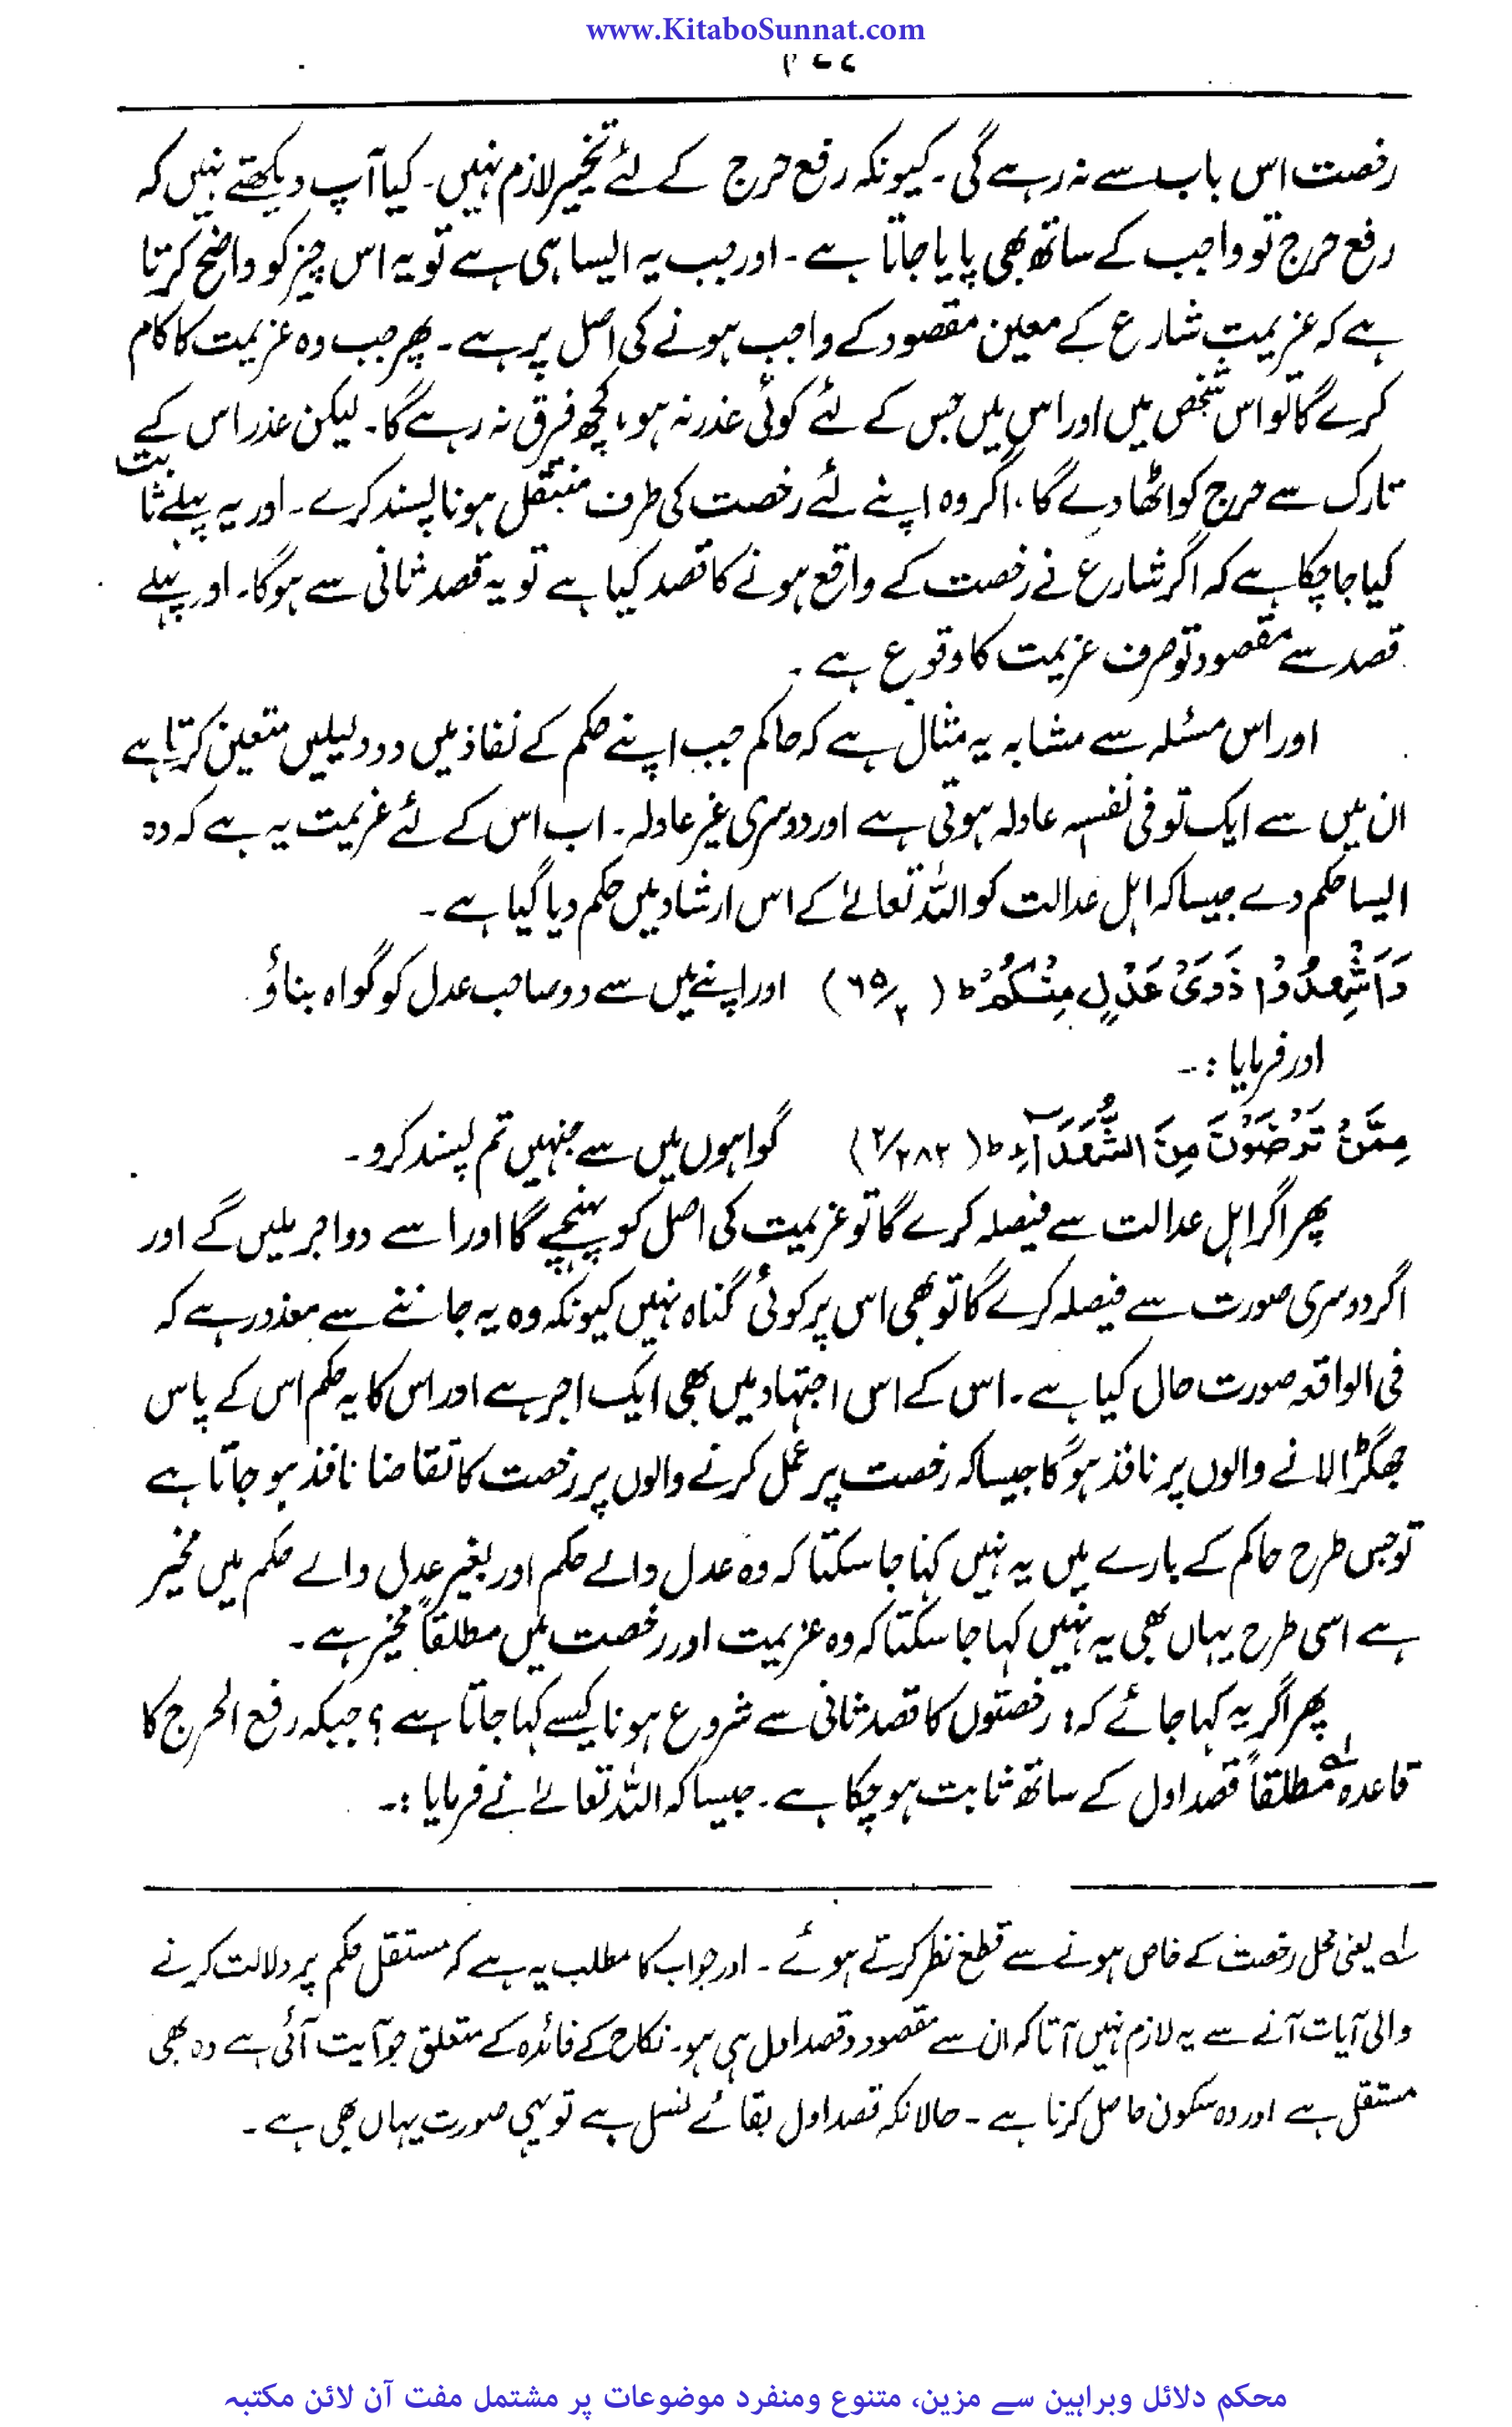 www.KitaboSunnat.com
رخصت اس باب سے نہ رہے گی۔ کیونکہ رفع حرج کے لئے تخییر لازم نہیں۔ کیا آپ دیکھتے نہیں کہ
رفع حرج تو واجب کے ساتھ بھی پایا جاتا ہے۔ اور جب یہ ایسا ہی ہے تو یہ اس چیز کو واضح کرتا
ہے کہ عزیمت شارع کے معین مقصود کے واجب ہونے کی اصل پر ہے۔ پھر جب وہ عزیمت کا کام
کرے گا تو اس شخص میں اور اس میں جس کے لئے کوئی عذر نہ ہو، کچھ فرق نہ رہے گا۔ لیکن عذر اس کے
تارک سے حرج کو اٹھا دے گا، اگر وہ اپنے لئے رخصت کی طرف منتقل ہونا پسند کرے۔ اور یہ پہلے ثابت
کیا جا چکا ہے کہ اگر شارع نے رخصت کے واقع ہونے کا قصد کیا ہے تو یہ قصد ثانی سے ہوگا۔ اور پہلے
قصد سے مقصود تو صرف عزیمت کا وقوع ہے۔
اور اس مسئلہ سے مشابہ یہ مثال ہے کہ حاکم جب اپنے حکم کے نفاذ میں دو دلیلیں متعین کرتا ہے
ان میں سے ایک تو فی نفسہ عادلہ ہوتی ہے اور دوسری غیر عادلہ۔ اب اس کے لئے عزیمت یہ ہے کہ وہ
ایسا حکم دے جیسا کہ اہل عدالت کو اللہ تعالےٰ کے اس ارشاد میں حکم دیا گیا ہے۔
وَاَشْهِدُوْا ذَوَیْ عَدْلٍ مِّنْكُمْ ط (۶۵/۲) اور اپنے میں سے دو صاحب عدل کو گواہ بناؤ
اور فرمایا :۔
مِمَّنْ تَرْضَوْنَ مِنَ الشُّهَدَآءِ ط (۲/۲۸۲) گواہوں میں سے جنہیں تم پسند کرو۔
پھر اگر اہل عدالت سے فیصلہ کرے گا تو عزیمت کی اصل کو پہنچے گا اور اسے دو اجر ملیں گے اور
اگر دوسری صورت سے فیصلہ کرے گا تو بھی اس پر کوئی گناہ نہیں کیونکہ وہ یہ جاننے سے معذور ہے کہ
فی الواقعہ صورت حال کیا ہے۔ اس کے اس اجتہاد میں بھی ایک اجر ہے اور اس کا یہ حکم اس کے پاس
جھگڑا لانے والوں پر نافذ ہوگا جیسا کہ رخصت پر عمل کرنے والوں پر رخصت کا تقاضا نافذ ہو جاتا ہے
تو جس طرح حاکم کے بارے میں یہ نہیں کہا جا سکتا کہ وہ عدل والے حکم اور بغیر عدل والے حکم میں مخیر
ہے اسی طرح یہاں بھی یہ نہیں کہا جا سکتا کہ وہ عزیمت اور رخصت میں مطلقاً مخیر ہے۔
پھر اگر یہ کہا جائے کہ: رخصتوں کا قصد ثانی سے شروع ہونا کیسے کہا جاتا ہے؟ جبکہ رفع الحرج کا
قاعدہ لے مطلقاً قصد اول کے ساتھ ثابت ہو چکا ہے۔ جیسا کہ اللہ تعالےٰ نے فرمایا :۔
لے یعنی محل رخصت کے خاص ہونے سے قطع نظر کرتے ہوئے۔ اور جواب کا مطلب یہ ہے کہ مستقل حکم پر دلالت کرنے
والی آیات آنے سے یہ لازم نہیں آتا کہ ان سے مقصود و قصد اول ہی ہو۔ نکاح کے فائدہ کے متعلق جو آیت آئی ہے وہ بھی
مستقل ہے اور وہ سکون حاصل کرنا ہے۔ حالانکہ قصد اول بقائے نسل ہے تو یہی صورت یہاں بھی ہے۔
محکم دلائل وبراہین سے مزین، متنوع ومنفرد موضوعات پر مشتمل مفت آن لائن مکتبہ